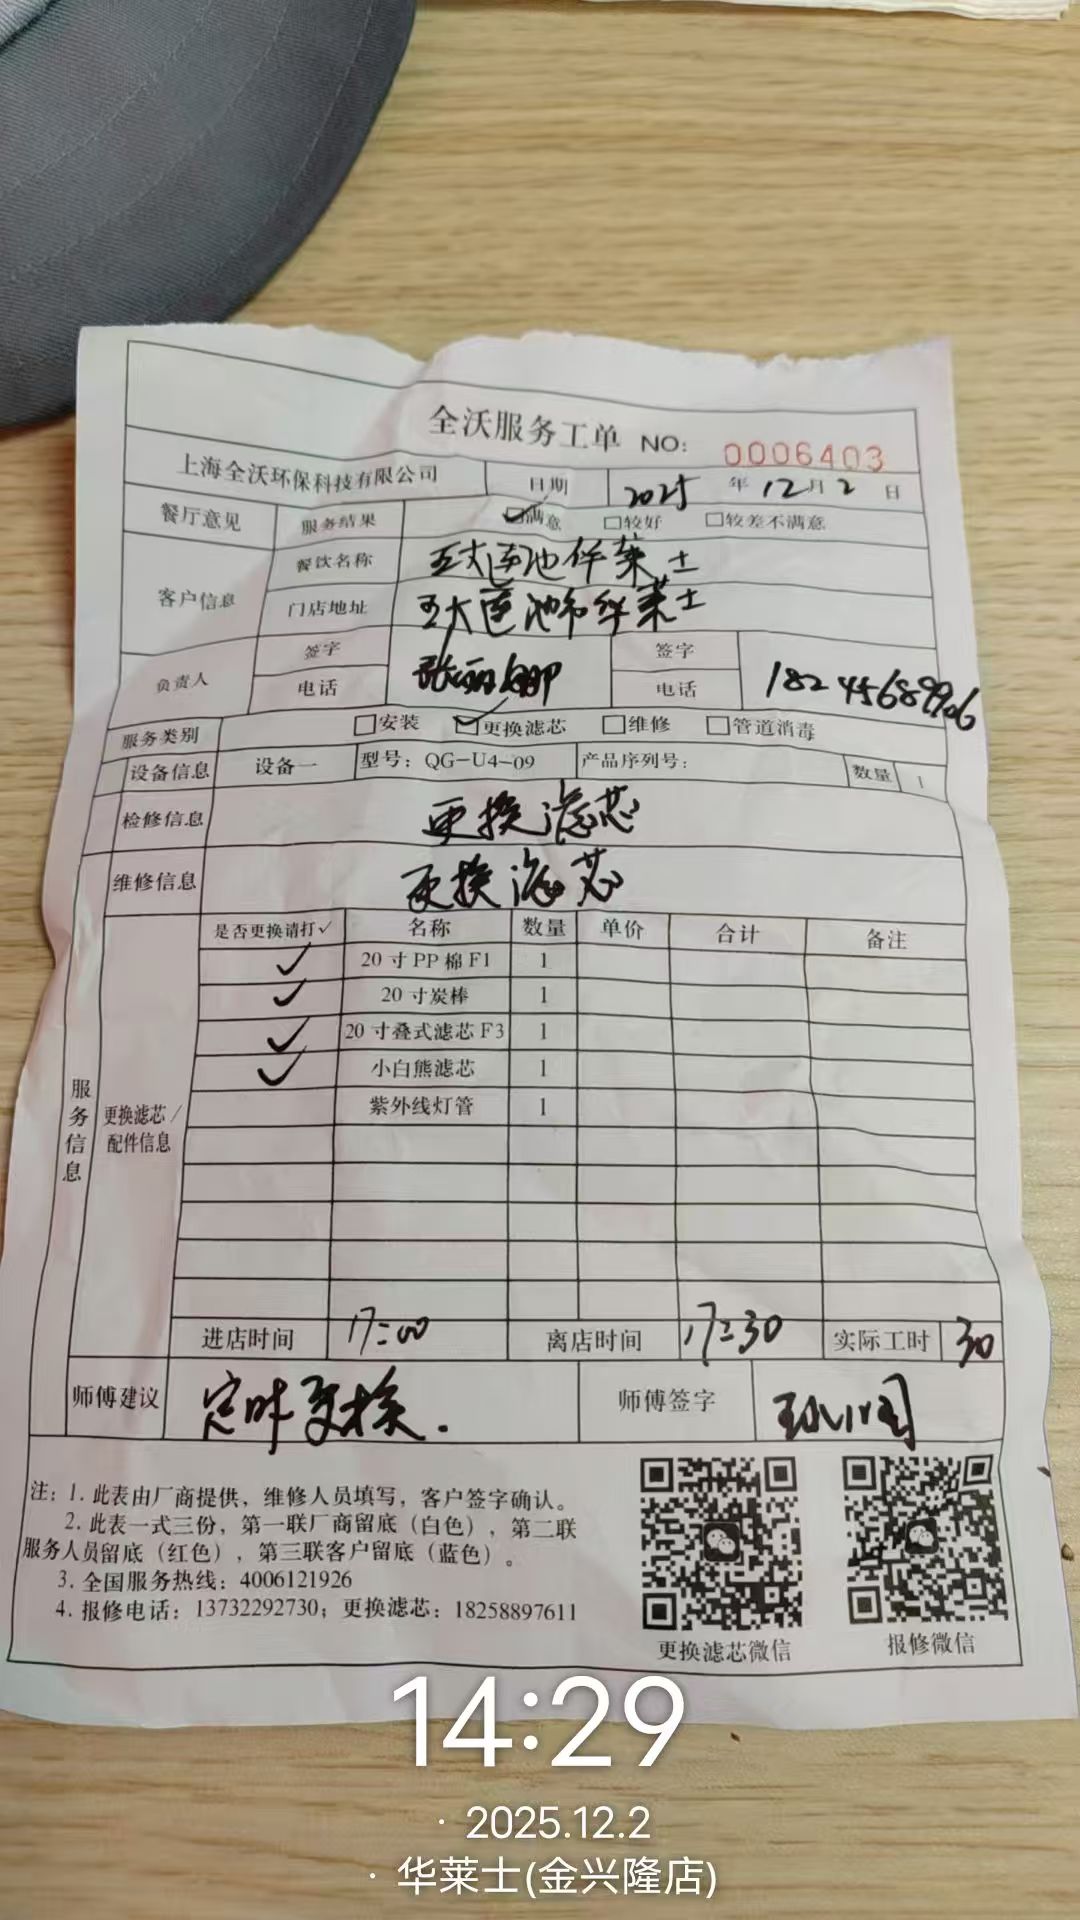 全沃服务工单 NO: 0006403
上海全沃环保科技有限公司 日期 2025 年 12 月 2 日
餐厅意见 服务结果 ☑满意 □较好 □较差不满意
客户信息 餐饮名称 五大连池华莱士
门店地址 五大连池市华莱士
负责人 签字 签字
电话 张丽娜 电话 18245689906
服务类别 □安装 ☑更换滤芯 □维修 □管道消毒
设备信息 设备一 型号: QG-U4-09 产品序列号: 数量 1
检修信息 更换滤芯
维修信息 更换滤芯
服务信息
更换滤芯/
配件信息
是否更换请打✓ 名称 数量 单价 合计 备注
✓ 20寸PP棉F1 1
✓ 20寸炭棒 1
✓ 20寸叠式滤芯F3 1
✓ 小白熊滤芯 1
紫外线灯管 1
进店时间 17:00 离店时间 17:30 实际工时 30
师傅建议 定时更换. 师傅签字
注: 1. 此表由厂商提供，维修人员填写，客户签字确认。
2. 此表一式三份，第一联厂商留底（白色），第二联
服务人员留底（红色），第三联客户留底（蓝色）。
3. 全国服务热线: 4006121926
4. 报修电话: 13732292730; 更换滤芯: 18258897611
更换滤芯微信 报修微信
14:29
· 2025.12.2
· 华莱士(金兴隆店)